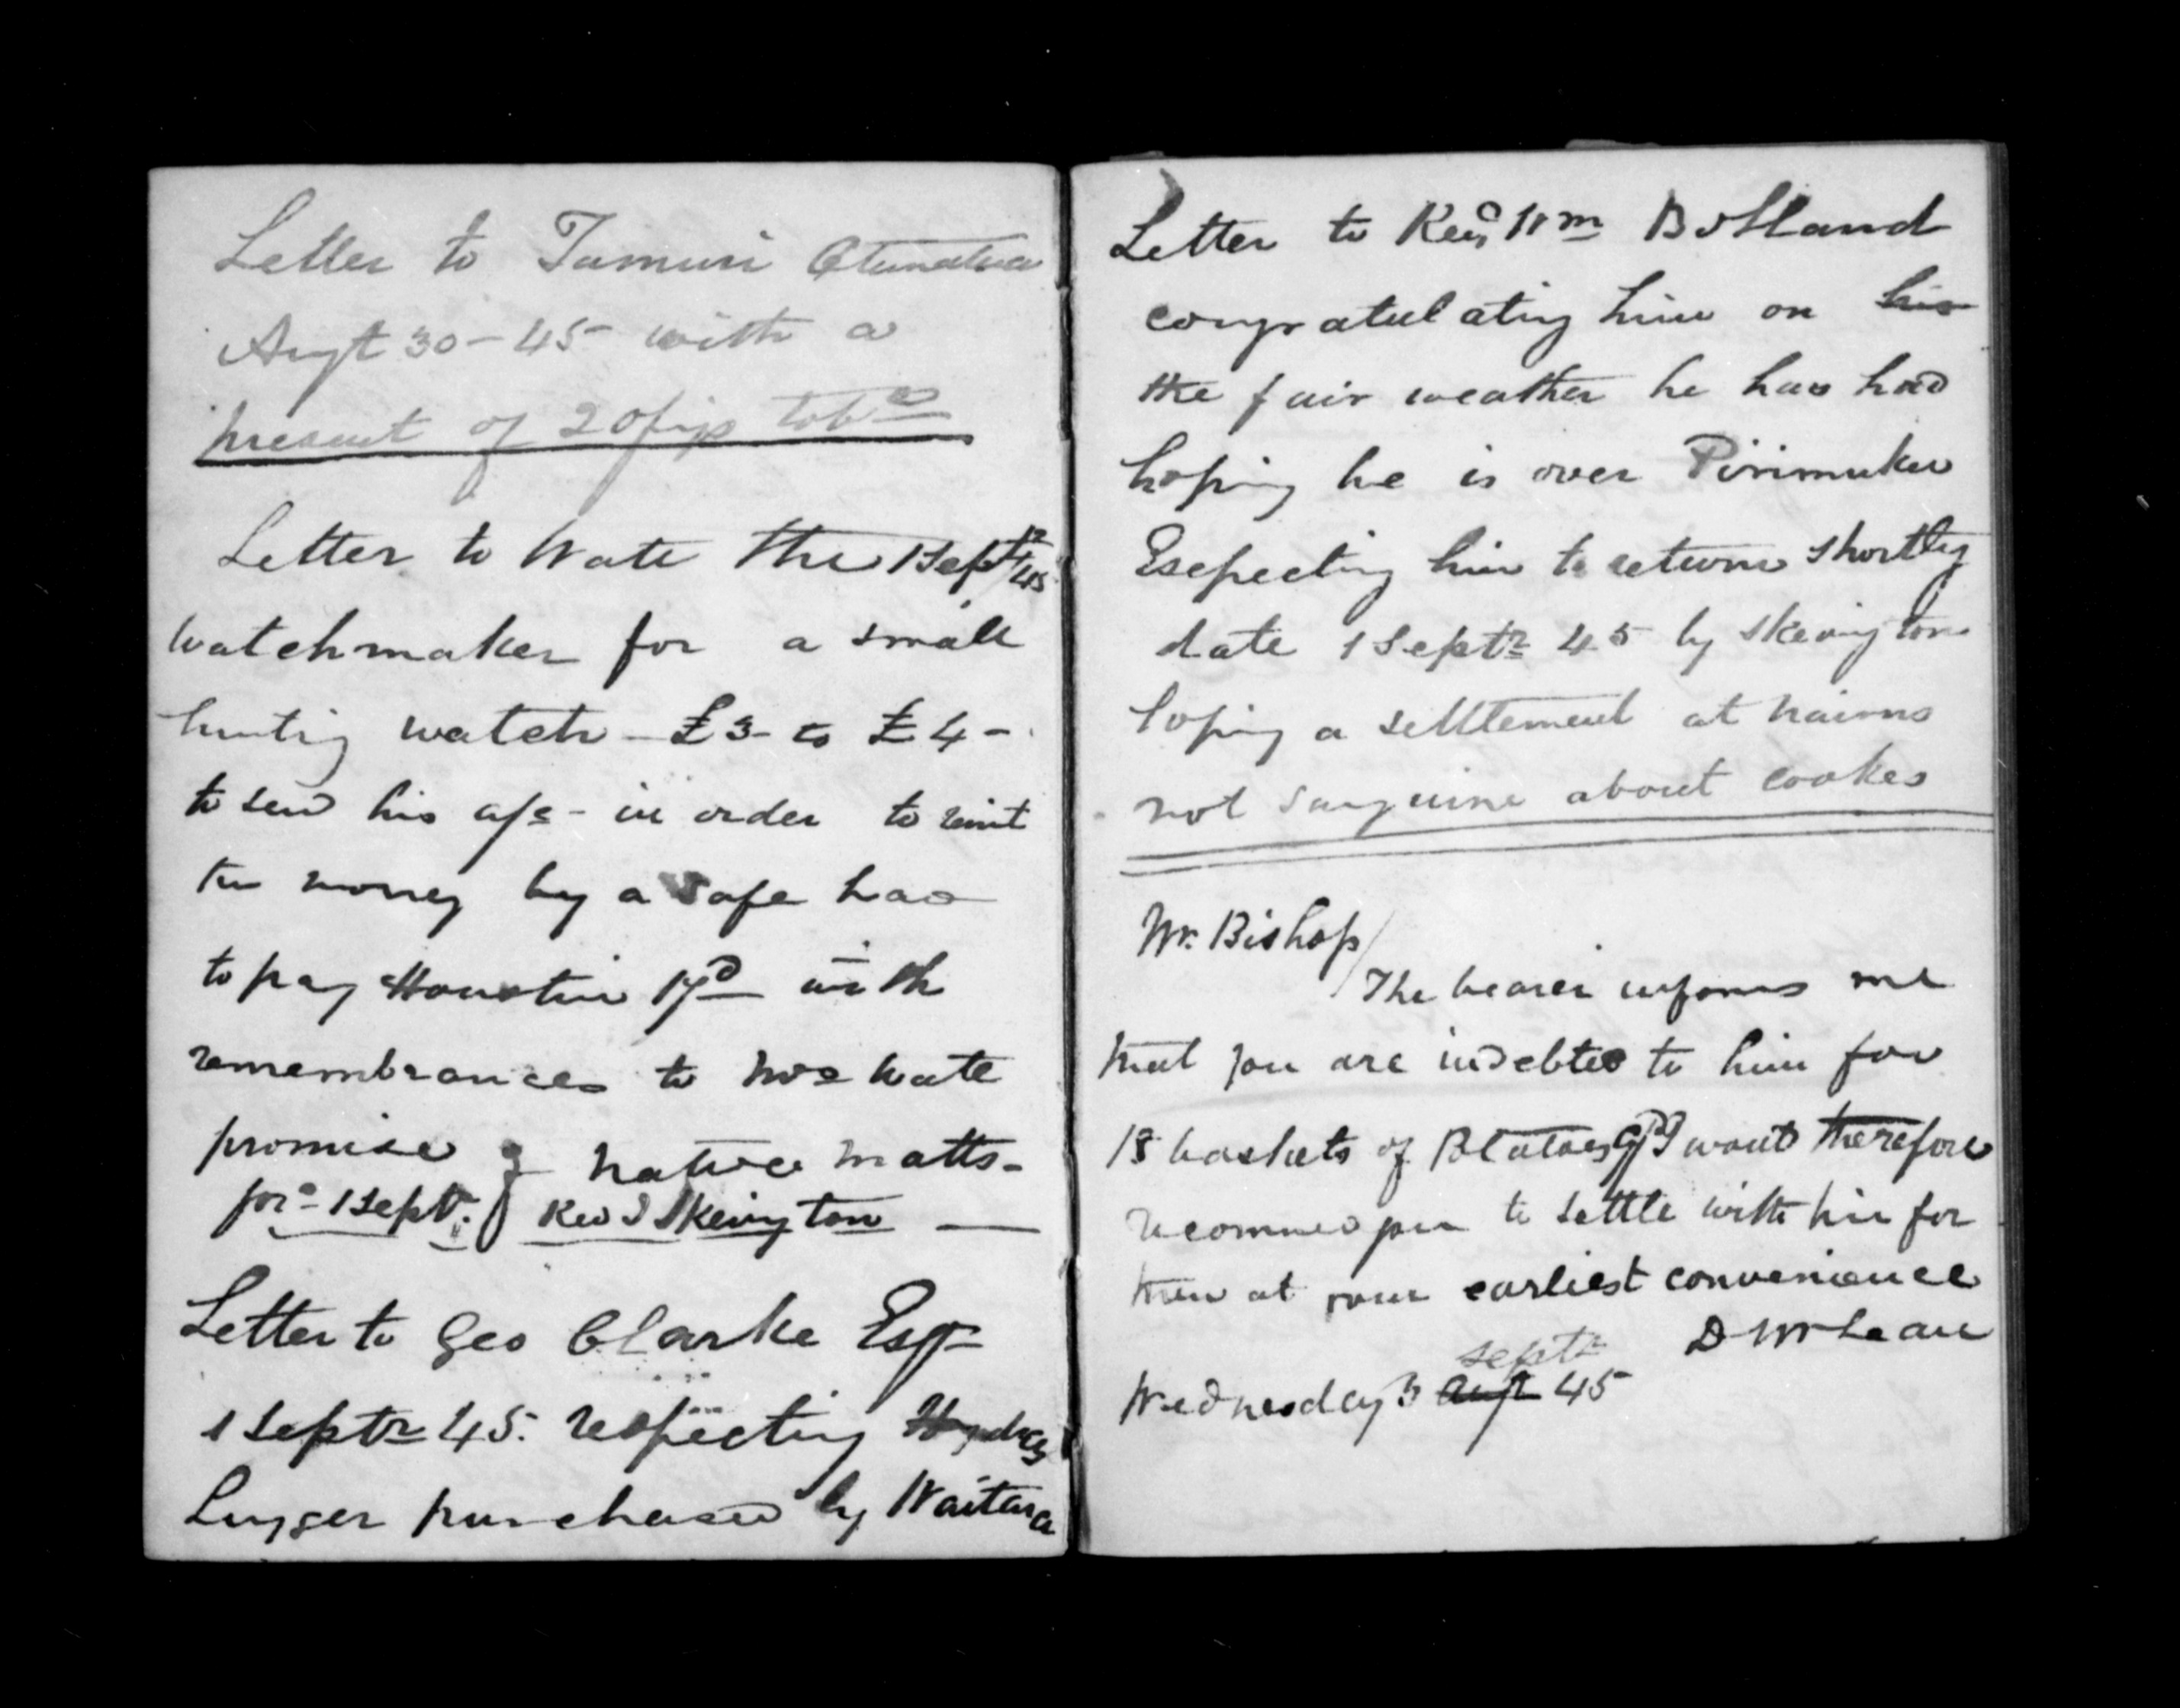 Letter to Tamuri
Augt 30 - 45 with a
present of 20 figs tobco
Letter to Wate the 1 Septr /45
Watchmaker for a small
hunting watch - £3 - to £4 -
to send his a/c - in order to remit
the money by a safe
to pay Houston 17/d with
remembrances to Mrs Wate
promise of native matts -
for 1 Sept. Revd Skevington
Letter to Geo Clarke Esqr
1 Septr 45. respecting
Lugger purchased by Waitara
Letter to Revd Wm Bolland
congratulating him on his
the fair weather he has had
hoping he is over Parimuku
Expecting him to return shortly
date 1 Septr 45 by Skevington
hoping a settlement at nairns
not sanguine about cookes
Mr. Bishop/
The bearer informs me
that you are indebted to him for
18 baskets of Potatoes I would therefore
recommend you to settle with him for
them at your earliest convenience
D McLean
septr
Wednesday 3 augt 45